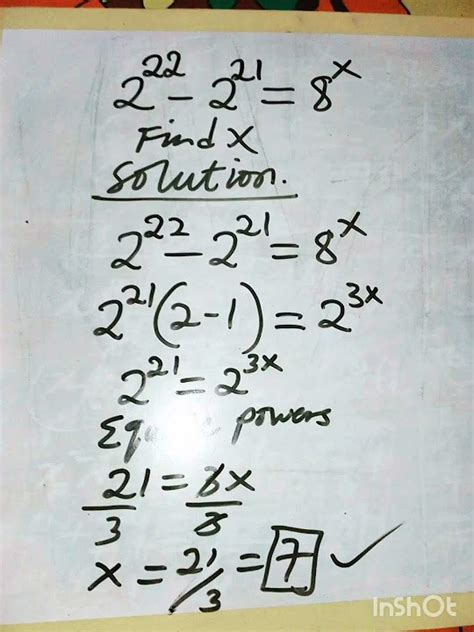 2²² - 2²¹ = 8ˣ
Find X
Solution.
2²² - 2²¹ = 8ˣ
2²¹(2-1) = 2³ˣ
2²¹ = 2³ˣ
powers
21/3 = 3x/3
x = 21/3 = 7 ✓
InShOt